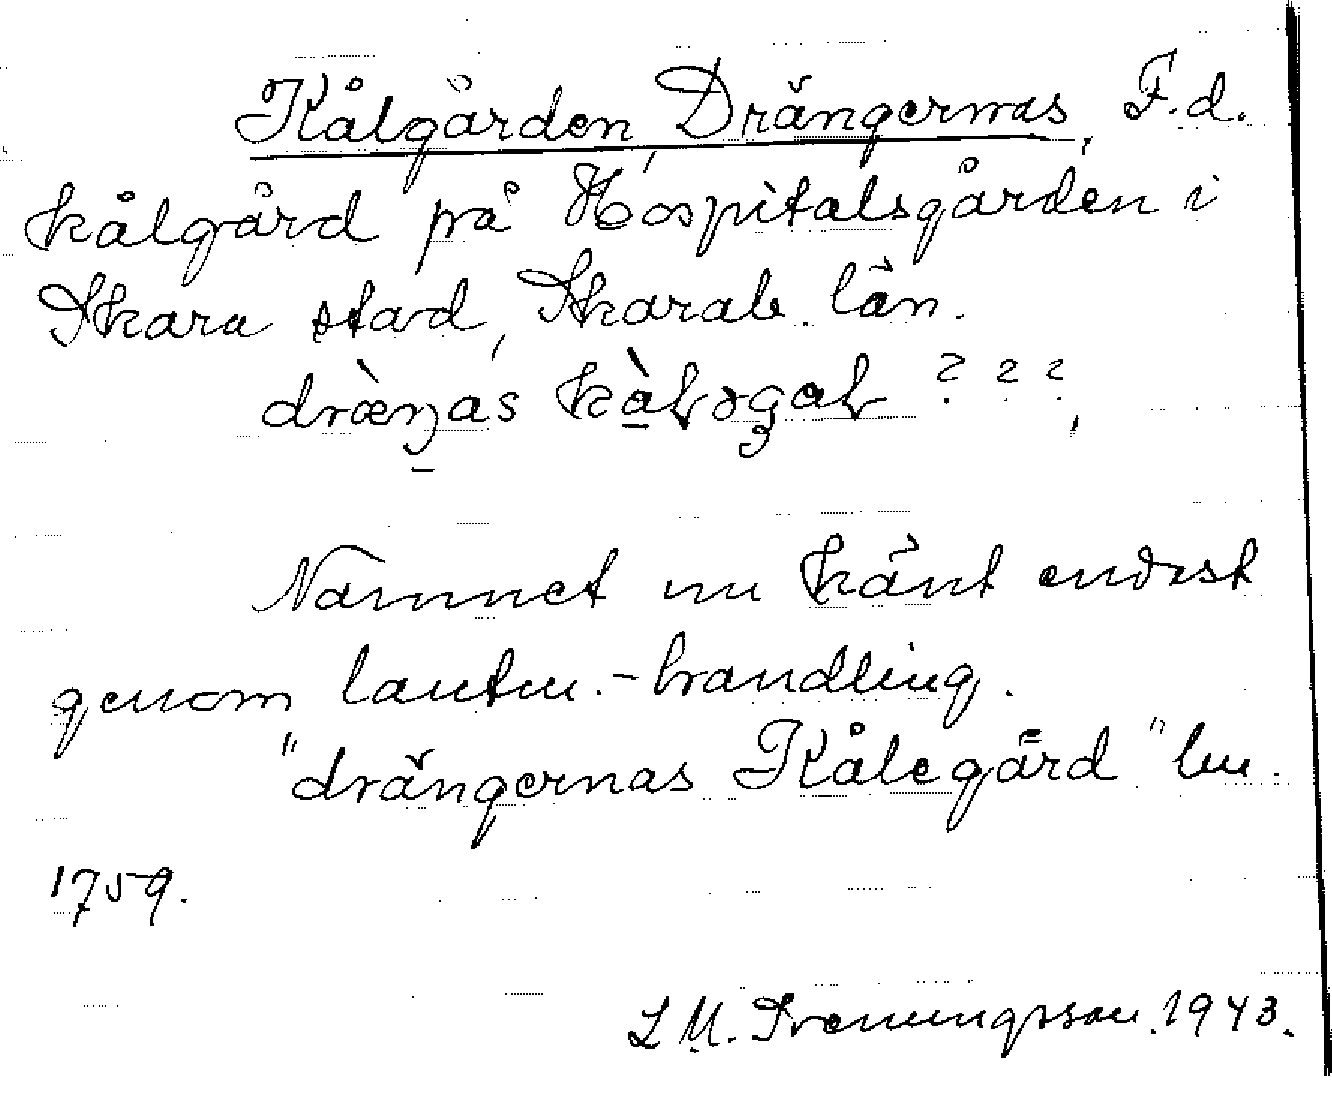 Kålgården, Drängernas, F.d.
kålgård på Hospitalsgården i
Skara stad, Skarab. län.
dræ̀ŋas kàɽəgaɽ ? ? ?,
Namnet nu känt endast
genom lantm.-handling.
"drängernas Kålegård" lm.
1759.
L M. Svenungsson. 1943.